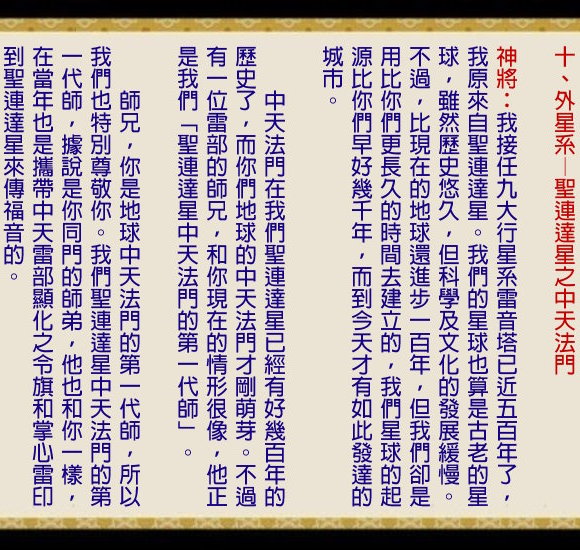 十、外星系—聖連達星之中天法門
神將：我接任九大行星系雷音塔已近五百年了，
我原來自聖連達星。我們的星球也算是古老的星
球，雖然歷史悠久，但科學及文化的發展緩慢。
不過，比現在的地球還進步一百年，但我們卻是
用比你們更長久的時間去建立的，我們星球的起
源比你們早好幾千年，而到今天才有如此發達的
城市。
中天法門在我們聖連達星已經有好幾百年的
歷史了，而你們地球的中天法門才剛萌芽。不過
有一位雷部的師兄，和你現在的情形很像，他正
是我們「聖連達星中天法門的第一代師」。
師兄，你是地球中天法門的第一代師，所以
我們也特別尊敬你。我們聖連達星中天法門的第
一代師，據說是你同門的師弟，他也和你一樣，
在當年也是攜帶中天雷部顯化之令旗和掌心雷印
到聖連達星來傳福音的。